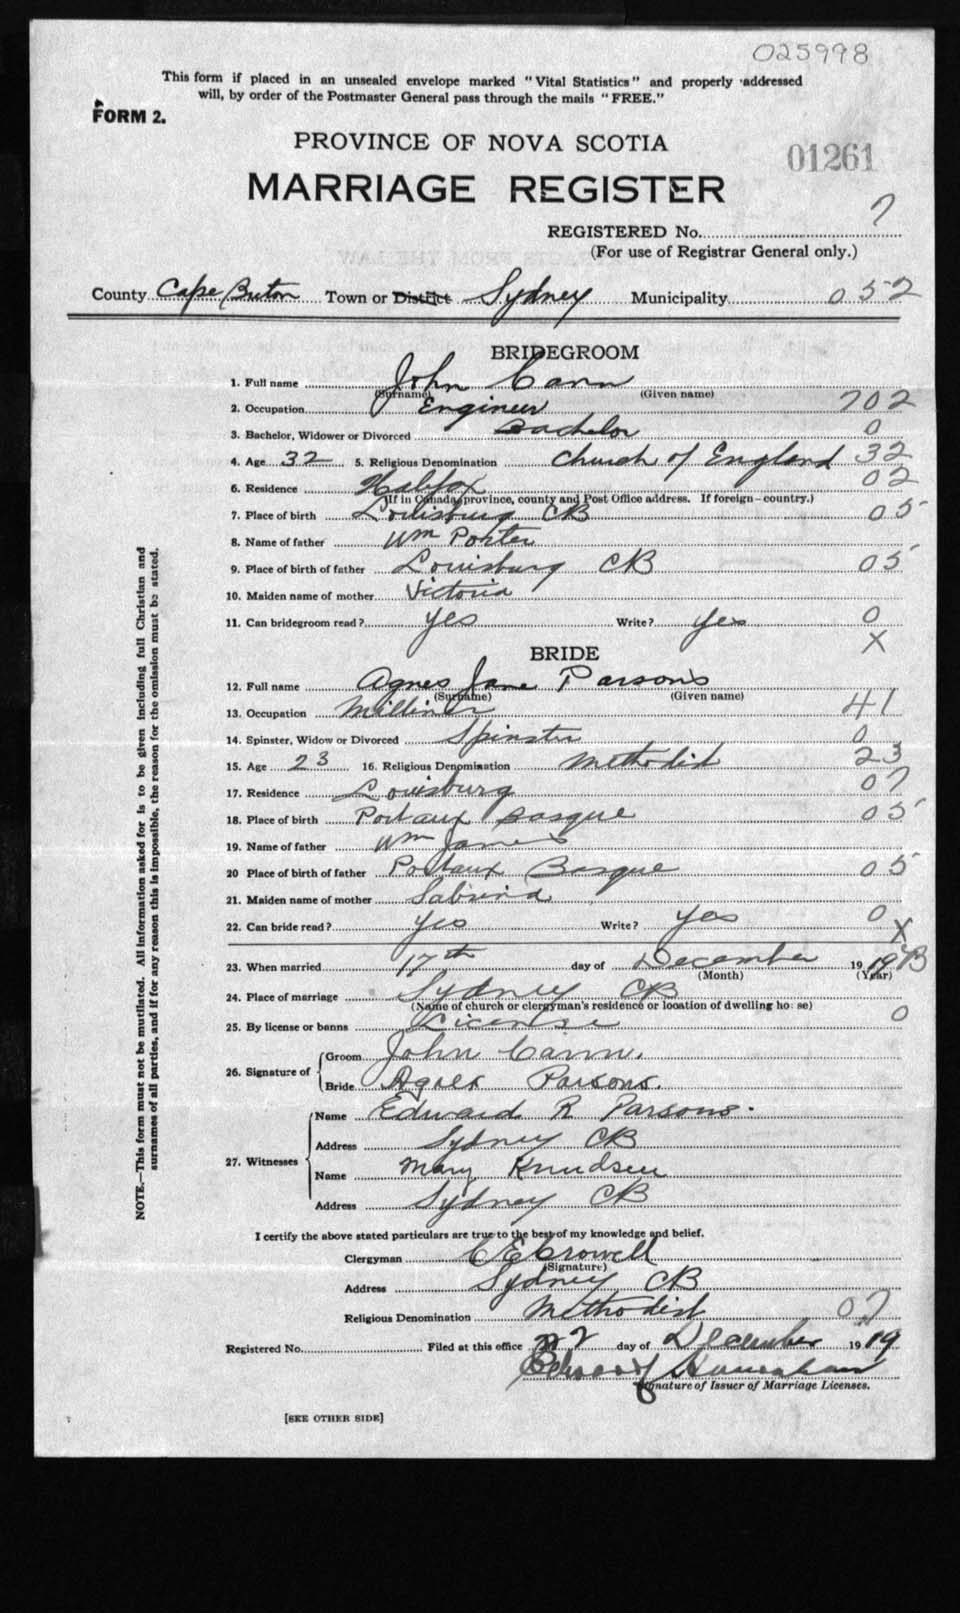 025998
This form if placed in an unsealed envelope marked "Vital Statistics" and properly addressed
will, by order of the Postmaster General pass through the mails "FREE."
FORM 2.
PROVINCE OF NOVA SCOTIA
01261
MARRIAGE REGISTER
REGISTERED No. 7
(For use of Registrar General only.)
County Cape Breton Town or District Sydney Municipality 052
BRIDEGROOM
1. Full name John Cann
(Surname) (Given name)
2. Occupation Engineer 702
3. Bachelor, Widower or Divorced Bachelor 0
4. Age 32 5. Religious Denomination Church of England 32
6. Residence Halifax 02
(If in Canada, province, county and Post Office address. If foreign—country.)
7. Place of birth Louisburg CB 05
8. Name of father Wm Porter
9. Place of birth of father Louisburg CB 05
10. Maiden name of mother Victoria
11. Can bridegroom read? yes Write? yes 0
X
BRIDE
12. Full name Agnes Jane Parsons
(Surname) (Given name)
13. Occupation Milliner 41
14. Spinster, Widow or Divorced Spinster 0
15. Age 23 16. Religious Denomination Methodist 23
17. Residence Louisburg 07
18. Place of birth Port aux Basque 05
19. Name of father Wm James
20 Place of birth of father Portaux Basque 05
21. Maiden name of mother Sabrina
22. Can bride read? yes Write? yes 0
X
23. When married 17th day of December 19 19
(Month) (Year)
24. Place of marriage Sydney CB
(Name of church or clergyman's residence or location of dwelling house)
25. By license or banns License 0
26. Signature of Groom John Cann.
Bride Agnes Parsons.
27. Witnesses
Name Edward R Parsons.
Address Sydney CB
Name Mary Knudsen
Address Sydney CB
I certify the above stated particulars are true to the best of my knowledge and belief.
Clergyman C E Crowell
(Signature)
Address Sydney CB
Religious Denomination Methodist 07
Registered No. Filed at this office 22 day of December 19 19
Signature of Issuer of Marriage Licenses.
[SEE OTHER SIDE]
NOTE.—This form must not be mutilated. All information asked for is to be given including full Christian and
surnames of all parties, and if for any reason this is impossible, the reason for the omission must be stated.